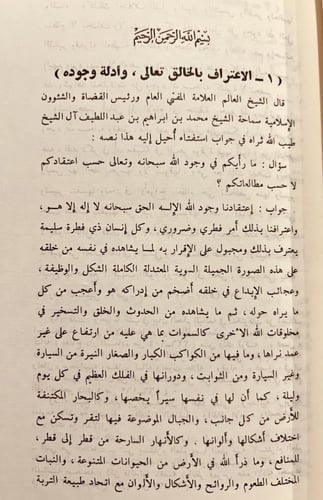 بِسْمِ اللَّهِ الرَّحْمَنِ الرَّحِيمِ
( ١ - الاعتراف بالخالق تعالى ، وأدلة وجوده )
قال الشيخ العالم العلامة المفتي العام ورئيس القضاة والشئوون
الإسلامية سماحة الشيخ محمد بن ابراهيم بن عبد اللطيف آل الشيخ
طيب الله ثراه في جواب استفتاء أحيل إليه هذا نصه :
سؤال : ما رأيكم في وجود الله سبحانه وتعالى حسب اعتقادكم
لا حسب مطالعاتكم ؟
جواب : إعتقادنا وجود الله الإلـه الحق سبحانه لا إله إلا هو ،
واعترافنا بذلك أمر فطري وضروري ، وكل إنسان ذي فطرة سليمة
يعترف بذلك ومجبول على الإقرار به لمـا يشاهده في نفسه من خلقه
على هذه الصورة الجميلة السوية المعتدلة الكاملة الشكل والوظيفة ،
وعجائب الإبداع في خلقه أضخم من إدراكه هو وأعجب من كل
ما يراه حوله ، ثم ما يشاهده من الحدوث والخلق والتسخير في
مخلوقات الله الأخرى كالسموات بما هي عليه من ارتفاع على غير
عمد نراها ، وما فيها من الكواكب الكبار والصغار النيرة من السيارة
وغير السيارة ومن الثوابت ، ودورانها في الفلك العظيم في كل يوم
وليلة ، كما أن لها في نفسها سيراً يخصها ، وكالبحار المكتنفة
للأرض من كل جانب ، والجبال الموضوعة فيها لتقر وتسكن مع
اختلاف أشكالها وألوانها . وكالأنهار السارحة من قطر إلى قطر ،
للمنافع ، وما ذرأ الله في الأرض من الحيوانات المتنوعة ، والنبات
المختلف الطعوم والروائح والأشكال والألوان مع اتحاد طبيعة التربة